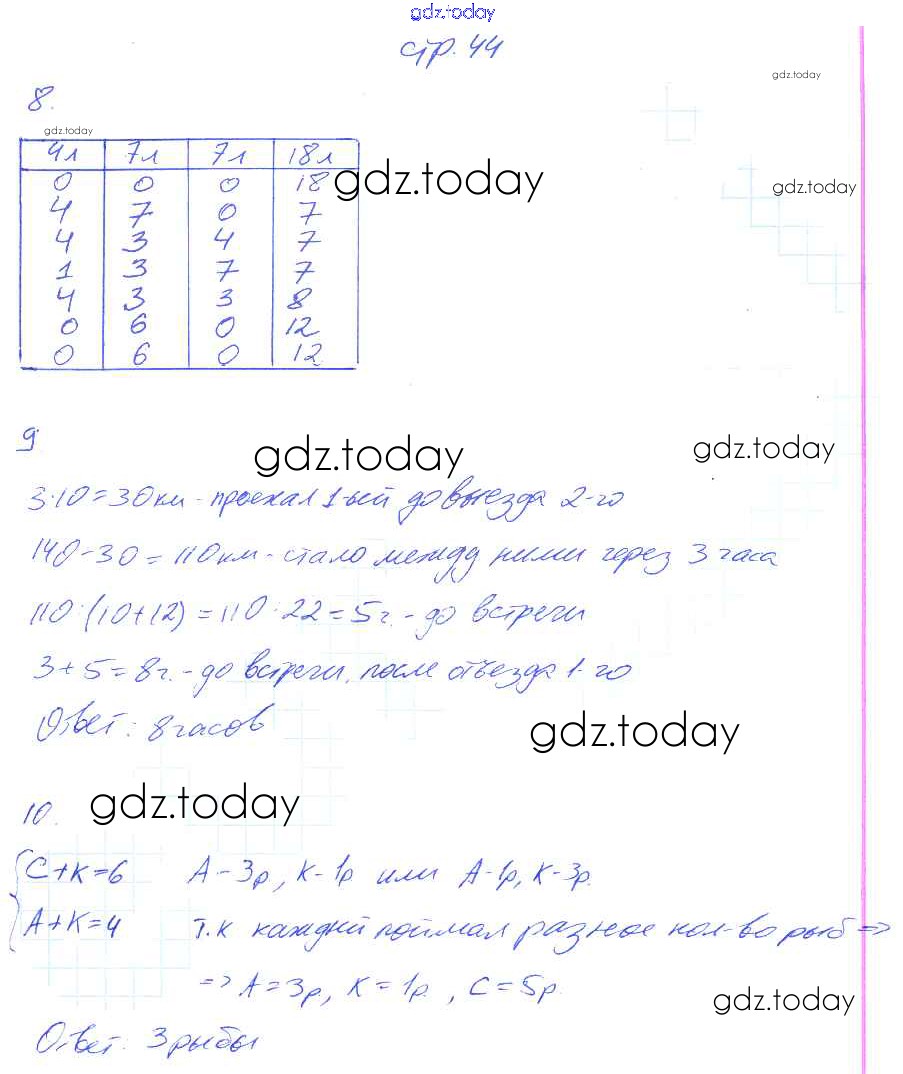 gdz.today
стр. 44
gdz.today
8.
gdz.today
4л 7л 7л 18л
0 0 0 18
gdz.today
gdz.today
4 7 0 7
4 3 4 7
1 3 7 7
4 3 3 8
0 6 0 12
0 6 0 12
9
gdz.today
gdz.today
3·10=30км - проехал 1-ый до выезда 2-го
140-30=110км - стало между ними через 3 часа
110:(10+12)=110:22=5ч. - до встречи
3+5=8ч. - до встречи, после отъезда 1-го
Ответ: 8 часов
gdz.today
gdz.today
10.
С+К=6 А-3р, К-1р или А-1р, К-3р.
А+К=4 т.к каждый поймал разное кол-во рыб =>
=> А=3р, К=1р., С=5р.
gdz.today
Ответ: 3 рыбы